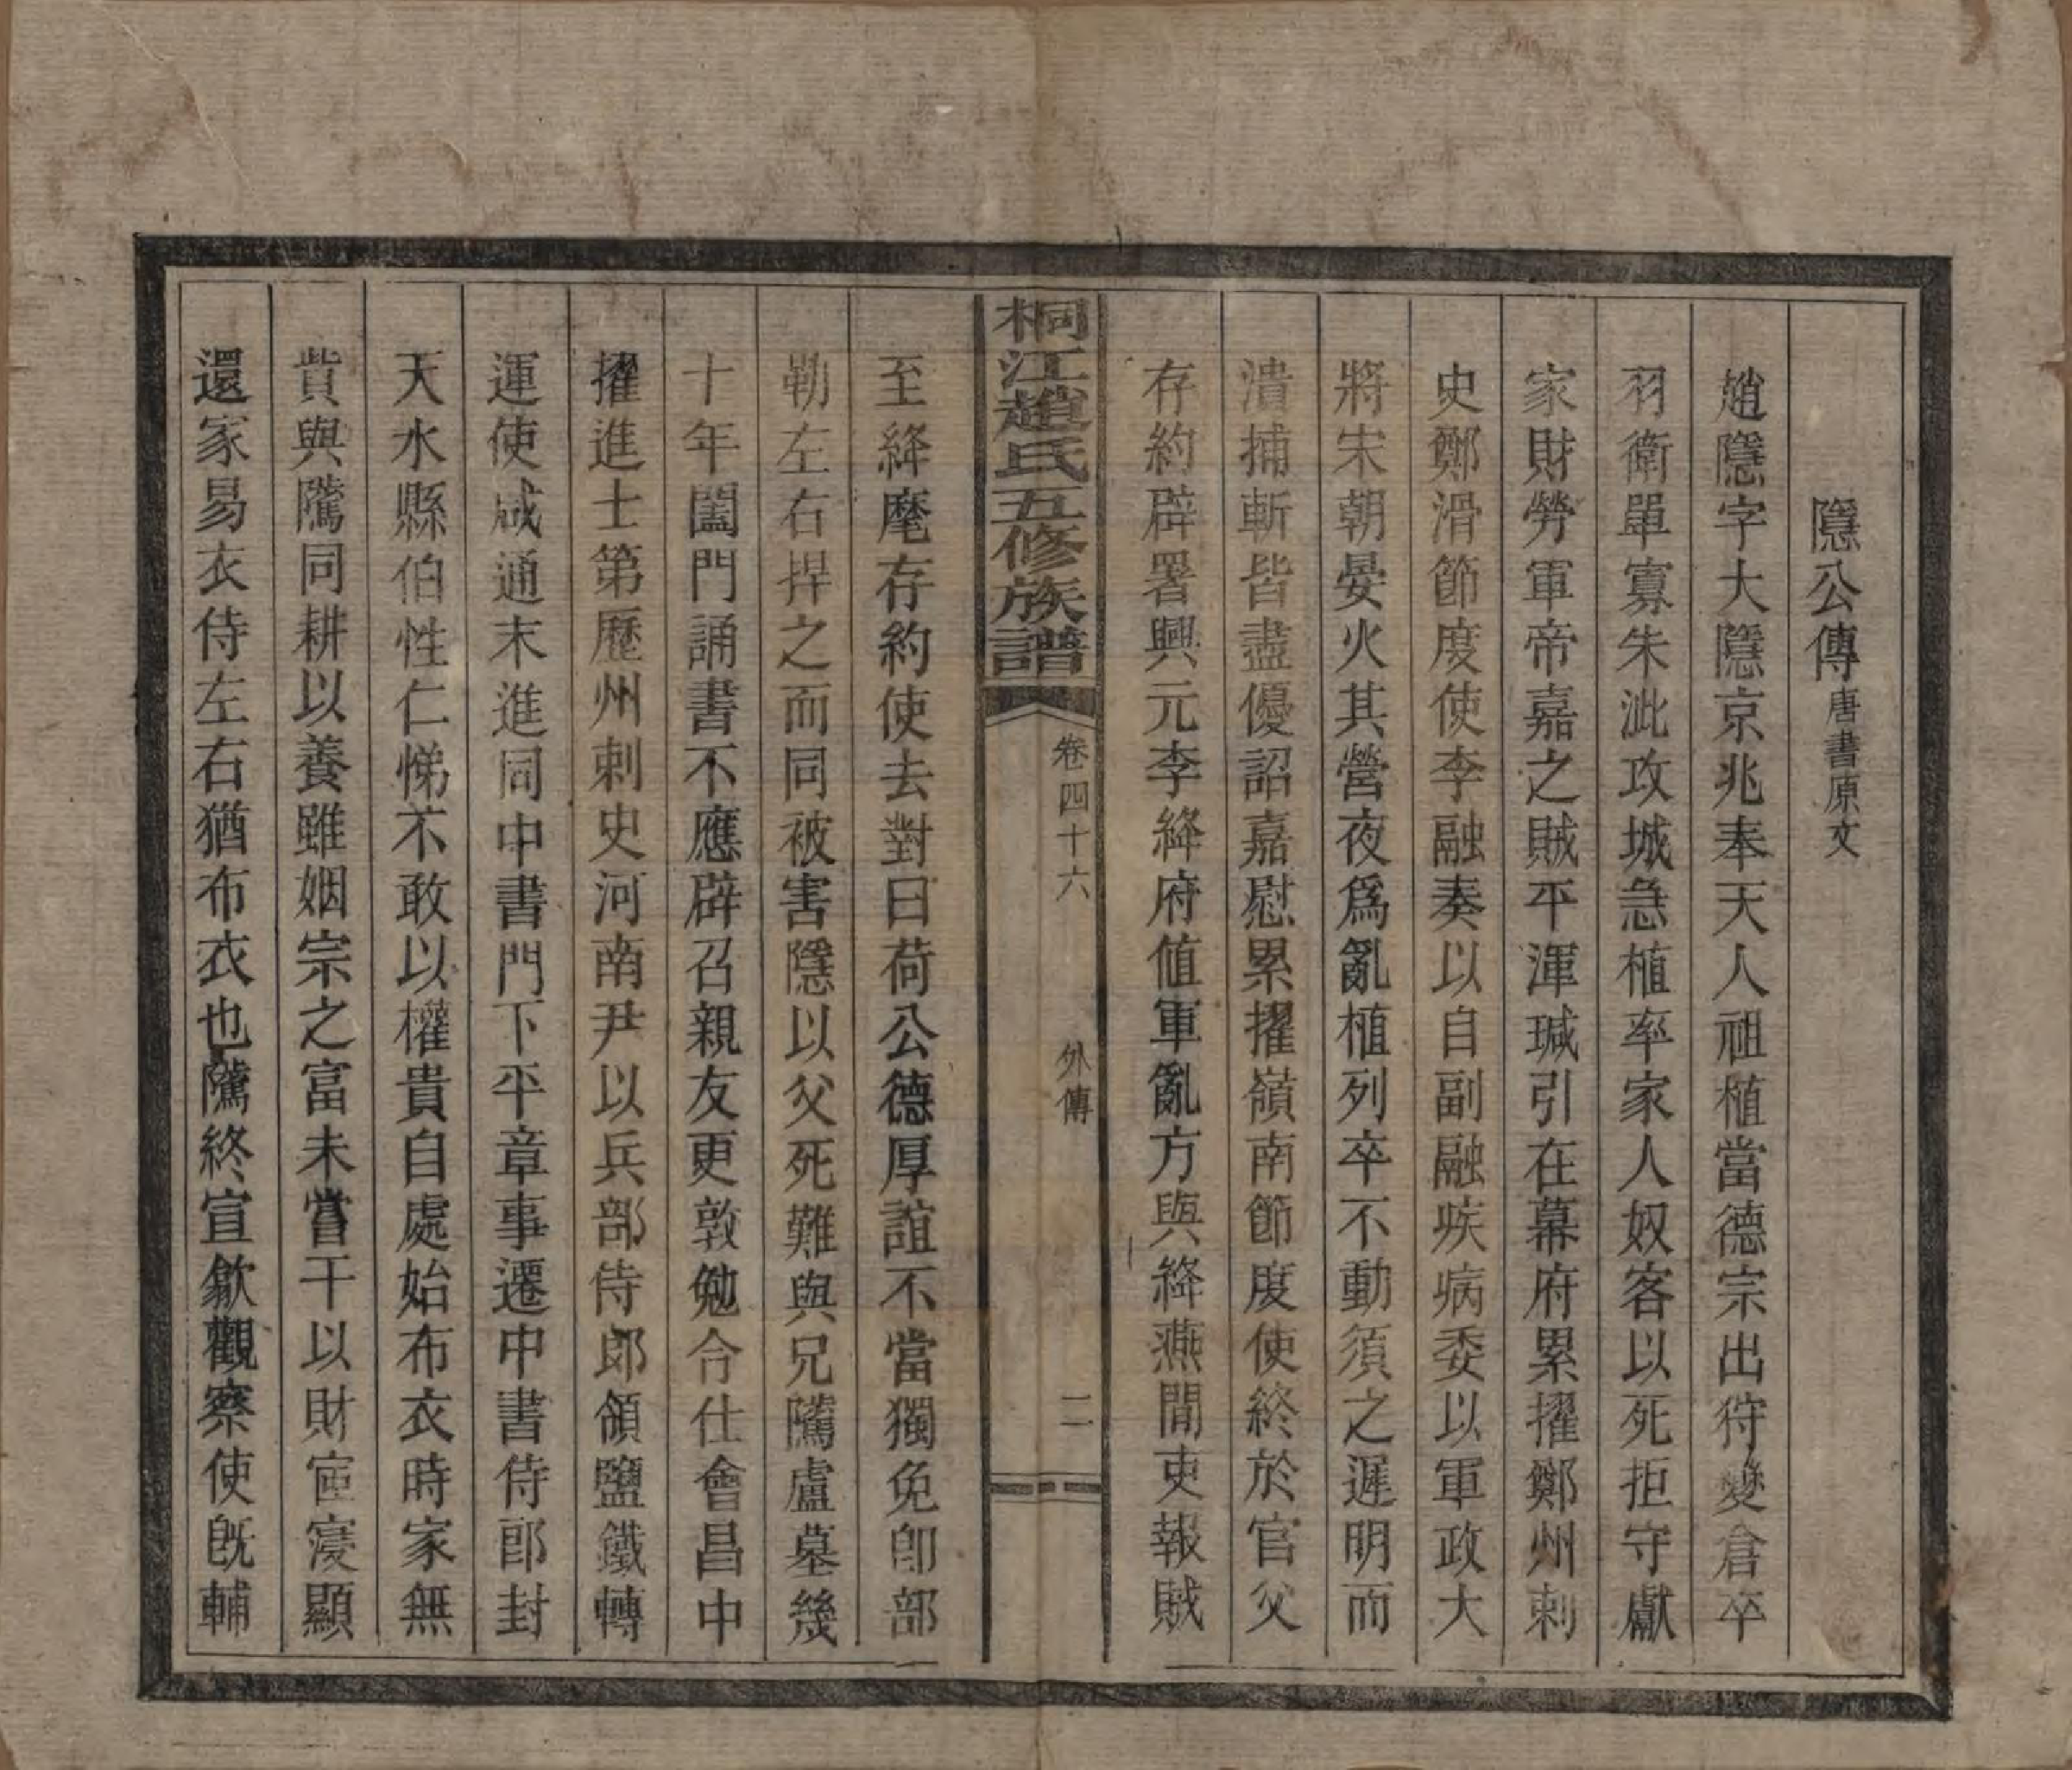 隱公傳唐書原文
趙隱字大隱京兆奉天人祖植當德宗出狩變倉卒
羽衛單寡朱泚攻城急植率家人奴客以死拒守獻
家財勞軍帝嘉之賊平渾瑊引在幕府累擢鄭州刺
史鄭滑節度使李融奏以自副融疾病委以軍政大
將宋朝晏火其營夜爲亂植列卒不動須之遲明而
潰捕斬皆盡優詔嘉慰累擢嶺南節度使終於官父
存約辟署興元李絳府値軍亂方與絳燕閒吏報賊
桐江趙氏五修族譜
卷四十六
外傳
二
至絳麾存約使去對曰荷公德厚誼不當獨免卽部
勒左右捍之而同被害隱以父死難與兄隲廬墓幾
十年闔門誦書不應辟召親友更敦勉令仕會昌中
擢進士第歷州刺史河南尹以兵部侍郎領鹽鐵轉
運使咸通末進同中書門下平章事遷中書侍郎封
天水縣伯性仁悌不敢以權貴自處始布衣時家無
貲與隲同耕以養雖姻宗之富未嘗干以財宦寖顯
還家易衣侍左右猶布衣也隲終宣歙觀察使旣輔